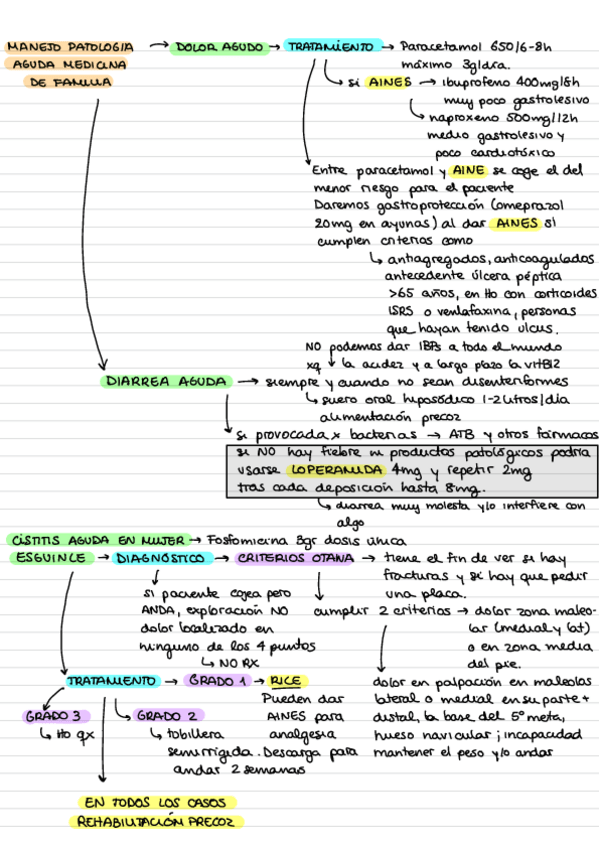 MANEJO PATOLOGIA → DOLOR AGUDO → TRATAMIENTO → Paracetamol 650/6-8h
AGUDA MEDICINA máximo 3g/día.
DE FAMILIA ↳ si AINES → ibuprofeno 400mg/8h
muy poco gastrolesivo
↳ naproxeno 500mg/12h
medio gastrolesivo y
poco cardiotóxico
Entre paracetamol y AINE se coge el del
menor riesgo para el paciente
Daremos gastroprotección (omeprazol
20mg en ayunas) al dar AINES si
cumplen criterios como
↳ antiagregados, anticoagulados
antecedente úlcera péptica
>65 años, en tto con corticoides
ISRS o venlafaxina, personas
que hayan tenido ulcus.
NO podemos dar IBPs a todo el mundo
xq ↓ la acidez y a largo plazo la vitB12
DIARREA AGUDA → siempre y cuando no sean disenteriformes
↳ suero oral hiposódico 1-2 litros/día
alimentación precoz
↳ si provocada x bacterias → ATB y otros fármacos
si NO hay fiebre ni productos patológicos podría
usarse LOPERAMIDA 4mg y repetir 2mg
tras cada deposición hasta 8mg.
↳ diarrea muy molesta y/o interfiere con
algo
CISTITIS AGUDA EN MUJER → Fosfomicina 3gr dosis única
ESGUINCE → DIAGNÓSTICO → CRITERIOS OTAWA → tiene el fin de ver si hay
fracturas y si hay que pedir
una placa.
si paciente cojea pero
ANDA, exploración NO
dolor localizado en
ninguno de los 4 puntos
↳ NO RX
cumplir 2 criterios → dolor zona maleo-
lar (medial y lat)
o en zona media
del pie.
dolor en palpación en maleolos
lateral o medial en su parte +
distal, la base del 5º meta,
hueso navicular; incapacidad
mantener el peso y/o andar
TRATAMIENTO → GRADO 1 → RICE
Pueden dar
AINES para
analgesia
GRADO 3
↳ tto qx
↳ GRADO 2
↳ tobillera
semirrígida. Descarga para
andar 2 semanas
EN TODOS LOS CASOS
REHABILITACIÓN PRECOZ